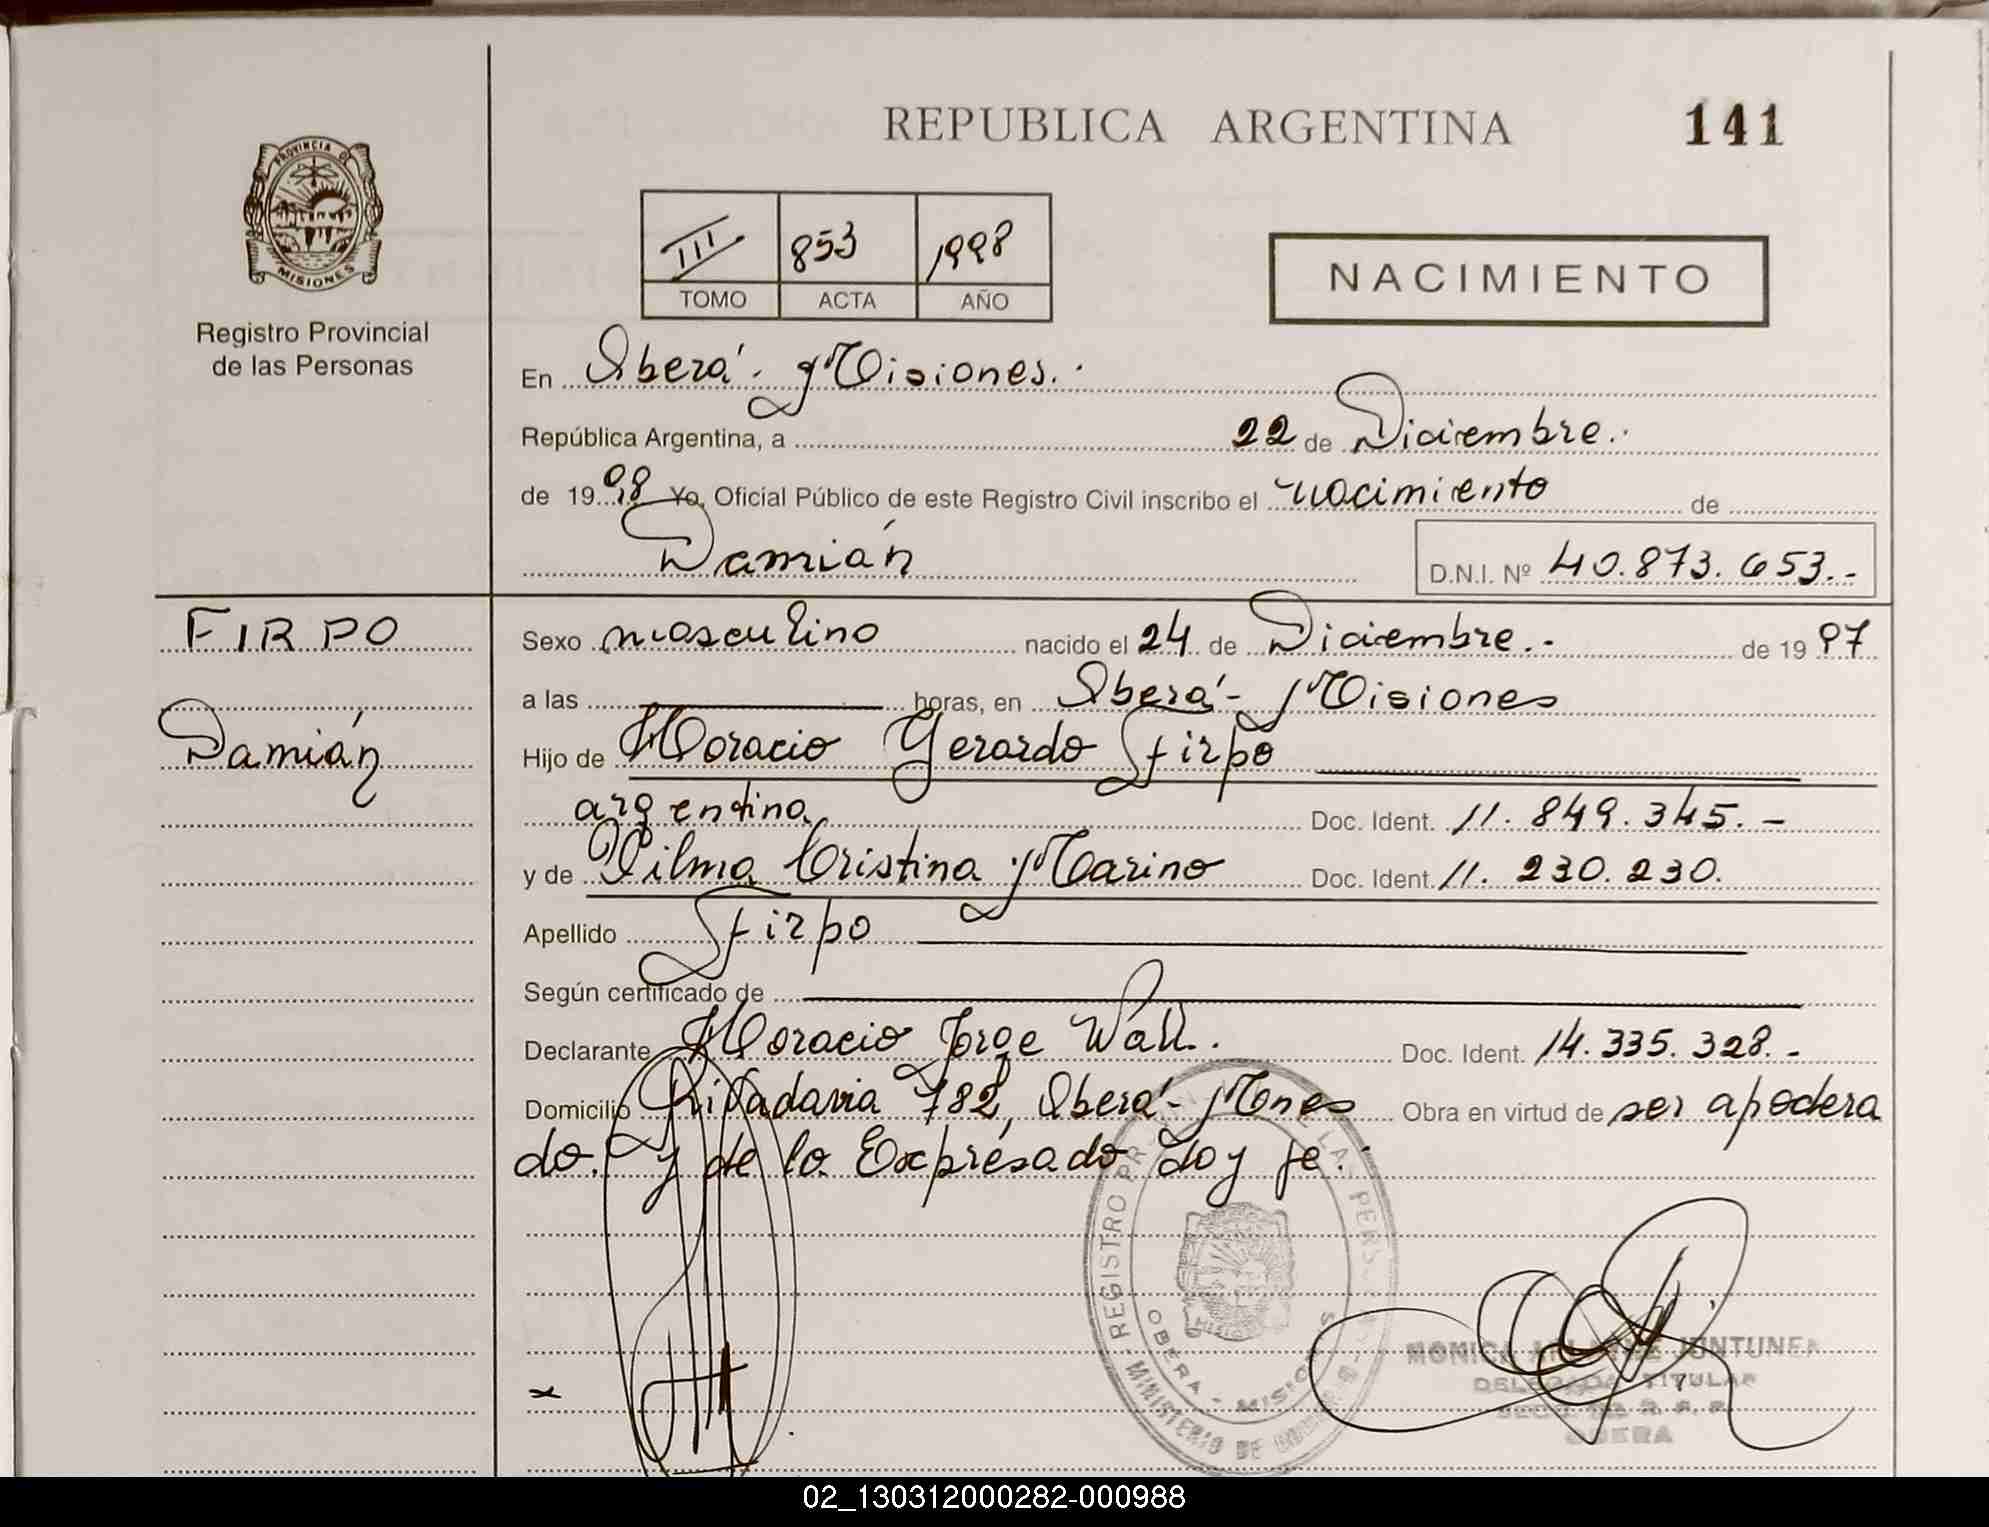 REPUBLICA ARGENTINA
141
PROVINCIA DE
MISIONES
Registro Provincial
de las Personas
III 853 1998
TOMO ACTA AÑO
NACIMIENTO
En Oberá - Misiones.
República Argentina, a 22 de Diciembre.
de 19 98 Yo, Oficial Público de este Registro Civil inscribo el nacimiento de
Damián D.N.I. Nº 40.873.653.-
FIRPO
Damián
Sexo masculino nacido el 24 de Diciembre.- de 19 97
a las horas, en Oberá - Misiones
Hijo de Horacio Gerardo Firpo
argentina Doc. Ident. 11.849.345.-
y de Vilma Cristina Marino Doc. Ident. 11.230.230.
Apellido Firpo
Según certificado de
Declarante Horacio Jorge Wall. Doc. Ident. 14.335.328.-
Domicilio Rivadavia 782, Oberá - Mnes Obra en virtud de ser apodera
do. y de lo Expresado doy fe.
REGISTRO LAS PERS
OBERA - MISIO
MINISTERIO DE
MONICA JUNTUNEN
DELEGADA TITULAR
OBERA
02_130312000282-000988